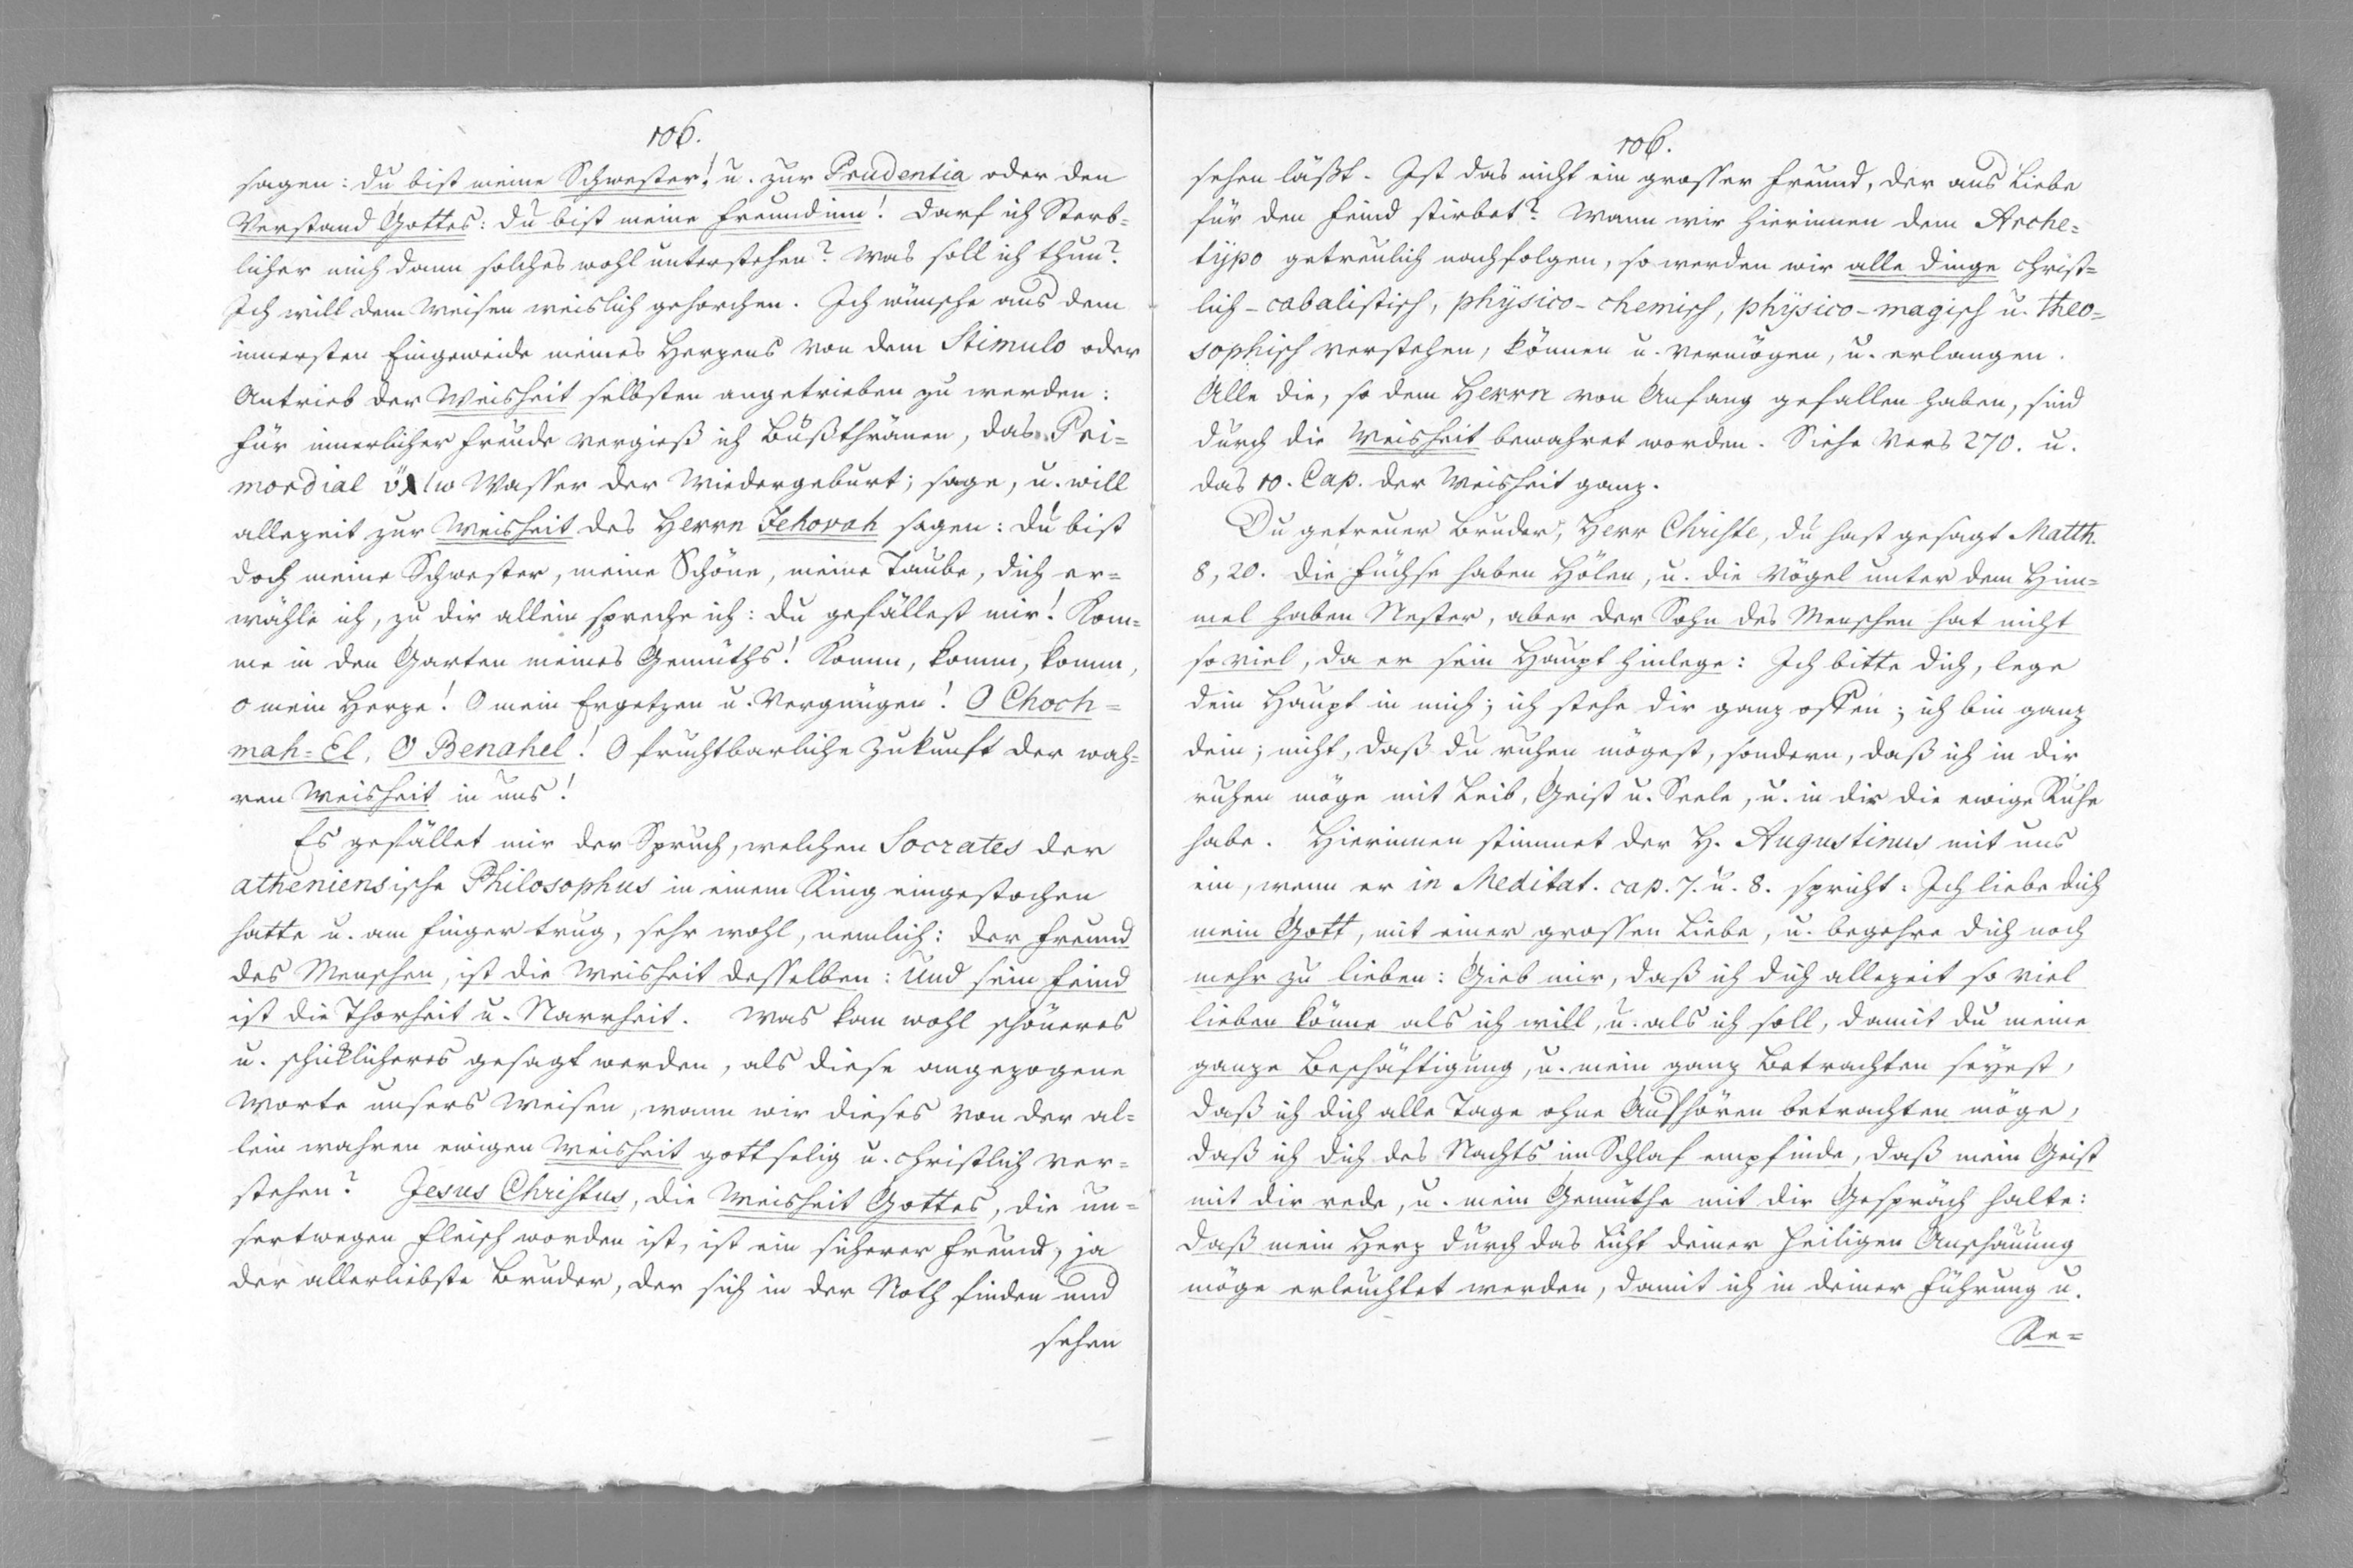 106.
sagen: du bist meine Schwester! u. zur Prudentia oder den
Verstand Gottes: du bist meine Freundinn! Darf ich Sterb=
licher mich dann solches wohl unterstehen? Was soll ich thun?
Ich will dem Weisen weislich gehorchen. Ich wünsche aus dem
innersten Eingeweide meines Herzens von dem Stimulo oder
Antrieb der Weisheit selbsten angetrieben zu werden:
für innerlicher Freude vergieß ich Bußthränen, das Pri=
mordial Wasser der Wiedergeburt; sage, u. will
allezeit zur Weisheit des Herrn Jehovah sagen: du bist
doch meine Schwester, meine Schöne, meine Taube, dich er=
wähle ich, zu dir allein spreche ich: du gefällest mir! Kom=
me in den Garten meines Gemüths! Komm, komm, komm,
o mein Herze! O mein Ergetzen u. Vergnügen! O Choch=
mah=El, O Benahel! O fruchtbarliche Zukunft der wah=
ren Weisheit in uns!
Es gefället mir der Spruch, welchen Socrates der
atheniensische Philosophus in einem Ring eingestochen
hatte u. am Finger trug, sehr wohl, nemlich: der Freund
des Menschen, ist die Weisheit desselben: Und sein Feind
ist die Thorheit u. Narrheit. Was kan wohl schöneres
u. schicklicheres gesagt werden, als diese angezogene
Worte unsers Weisen, wann wir dieses von der al=
lein wahren ewigen Weisheit gottselig u. christlich ver=
stehen? Jesus Christus, die Weisheit Gottes, die un=
sertwegen Fleisch worden ist, ist ein sicherer Freund, ja
der allerliebste Bruder, der sich in der Noth finden und
sehen
106.
sehen läßt. Ist das nicht ein grosser Freund, der aus Liebe
für den Feind stirbet? Wann wir hierinnen dem Arche=
typo getreulich nachfolgen, so werden wir alle Dinge christ=
lich-cabalistisch, physico-chemisch, physico-magisch u. theo=
sophisch verstehen, können u. vermögen, u. erlangen.
Alle die, so dem Herrn von Anfang gefallen haben, sind
durch die Weisheit bewahret worden. Siehe Vers 270. u.
das 10. Cap. der Weisheit ganz.
Du getreuer Bruder, Herr Christe, du hast gesagt Matth.
8, 20. die Füchse haben Hölen, u. die Vögel unter dem Him=
mel haben Nester, aber der Sohn des Menschen hat nicht
so viel, da er sein Haupt hinlege: Ich bitte dich, lege
dein Haupt in mich; ich stehe dir ganz offen; ich bin ganz
dein; nicht, daß du ruhen mögest, sondern, daß ich in dir
ruhen möge mit Leib, Geist u. Seele, u. in dir die ewige Ruhe
habe. Hierinnen stimmet der H. Augustinus mit uns
ein, wenn er in Meditat. cap. 7. u. 8. spricht: Ich liebe dich
mein Gott, mit einer grossen Liebe, u. begehre dich noch
mehr zu lieben: Gieb mir, daß ich dich allezeit so viel
lieben könne als ich will, u. als ich soll, damit du meine
ganze Beschäftigung, u. mein ganz Betrachten seyest,
daß ich dich alle Tage ohne Aufhören betrachten möge,
daß ich dich des Nachts im Schlaf empfinde, daß mein Geist
mit dir rede, u. mein Gemüthe mit dir Gespräch halte:
daß mein Herz durch das Licht deiner heiligen Anschauung
möge erleuchtet werden, damit ich in deiner Führung u.
Re=